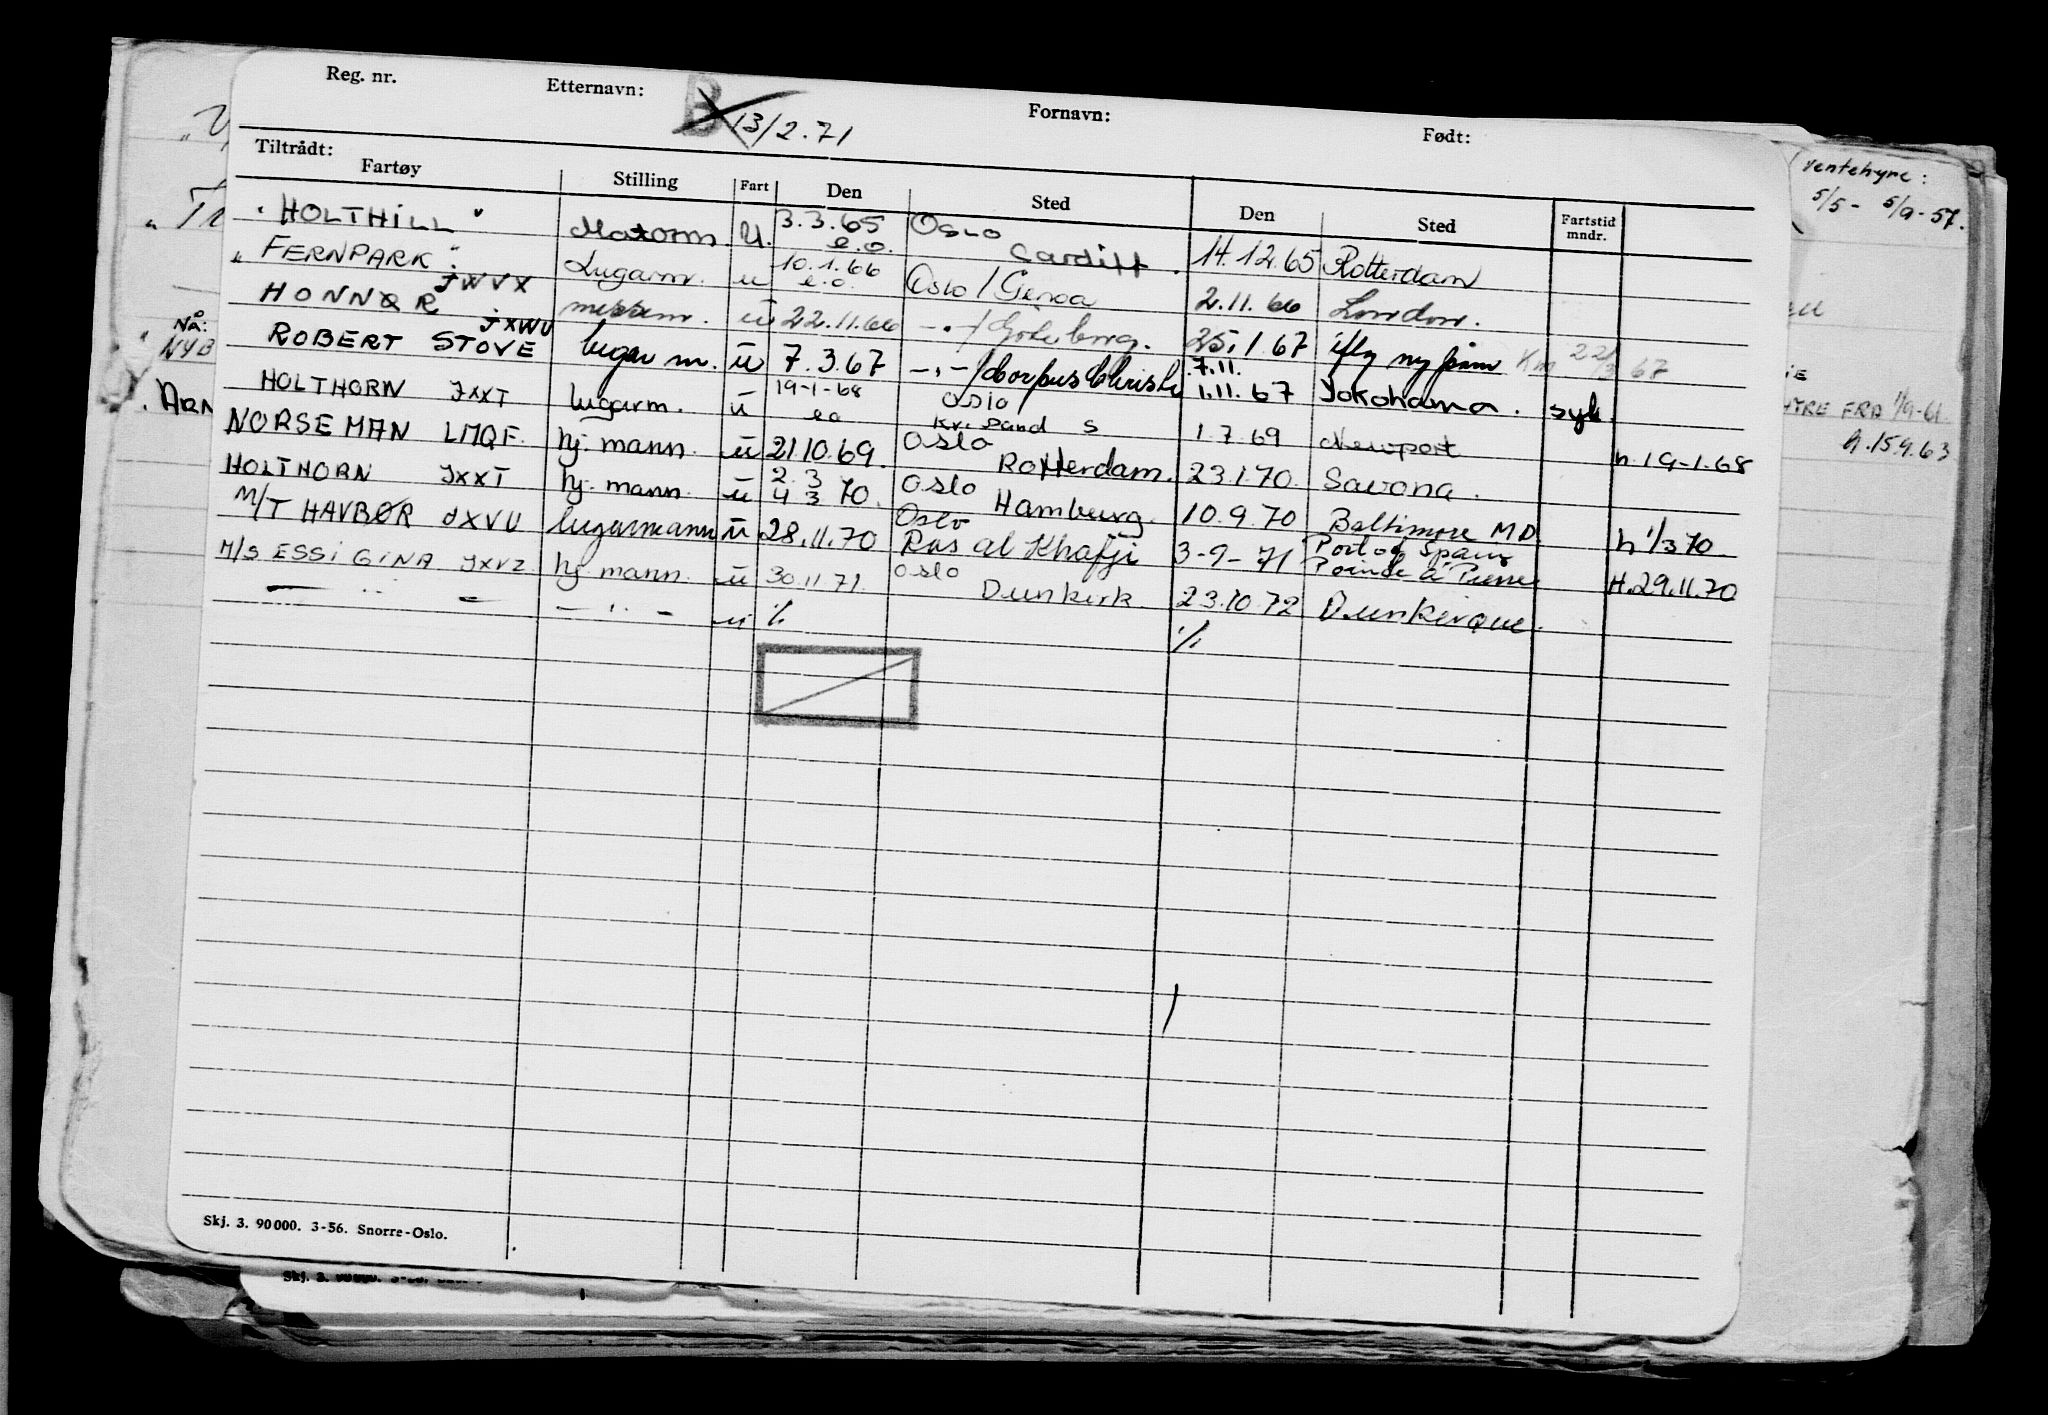 Reg. nr. Etternavn: B 13/2.71 Fornavn: Født:
Tiltrådt:
Fartøy Stilling Fart Den Sted Den Sted Fartstid mndr.
"HOLTHILL" Motorm. U. 3.3.65 e.o. Oslo Cardiff. 14.12.65 Rotterdam
"FERNPARK" JWVX Lugarm. u 10.1.66 e.o. Oslo / Genoa 2.11.66 London.
HONNØR JXWU messm. ü 22.11.66 -"-/ Göteborg. 25.1.67 iflg ny påm Km 22/3 67
ROBERT STOVE lugar m. ü 7.3.67 -"-/ Corpus Christi 7.11. 1.11.67 Yokohama. syk.
HOLTHORN JXXT lugarm. ü 19-1-68 eo Oslo Kr. sand S 1.7.69 Newport h.19-1.68
NORSE MAN LMQF. hj. mann. ü 21.10.69. Oslo Rotterdam. 23.1.70. Savona.
HOLTHORN JXXT hj. mann. ü 2.3 4 3 70. Oslo Hamburg. 10.9.70 Baltimore MD. h 1/3 70
M/T HAVBØR JXVU lugarmann ü 28.11.70 Oslo Ras al Khafji 3-9-71 Port of Spain Pointe à Pierre H.29.11.70
M/S ESSI GINA JXVZ hj. mann. ü 30.11.71. Oslo Dunkirk. 23.10.72 Dunkerque.
— " — — " — u ./. ./.
Skj. 3. 90 000. 3-56. Snorre-Oslo.
Skj. 3. 90 000. 3-56.
NÅ:
NYB
ARN
ventehyre:
5/5 - 5/9-57.
HYRE FRA 1/9-61.
h.15.9.63